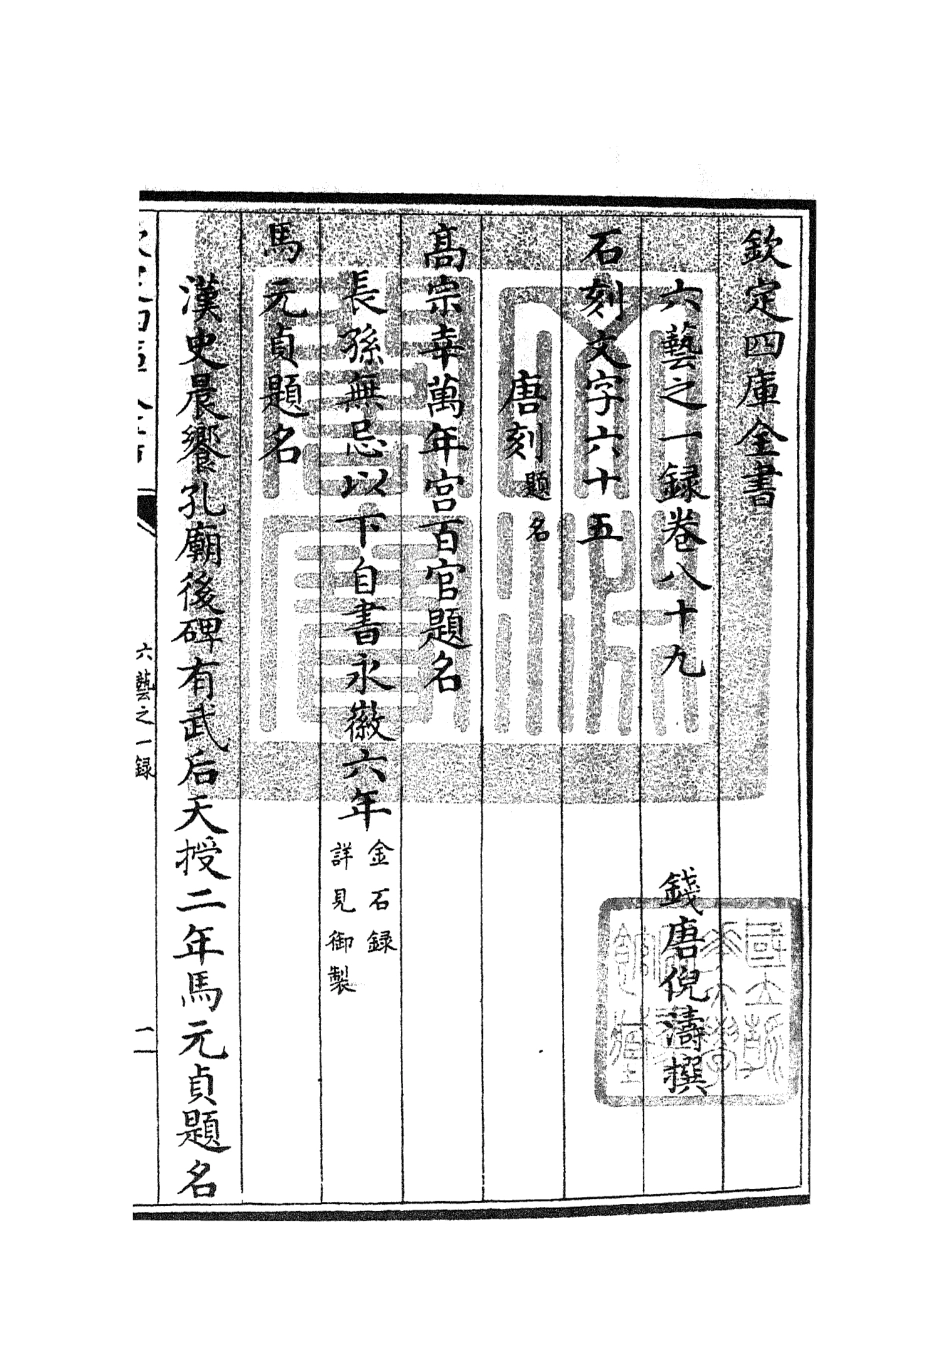 欽定四庫全書
六藝之一録卷八十九
錢唐倪濤撰
石刻文字六十五
唐刻題名
高宗幸萬年宮百官題名
長孫無忌以下自書永徽六年金石録
詳見御製
馬元貞題名
漢史晨饗孔廟後碑有武后天授二年馬元貞題名
六藝之一録
一